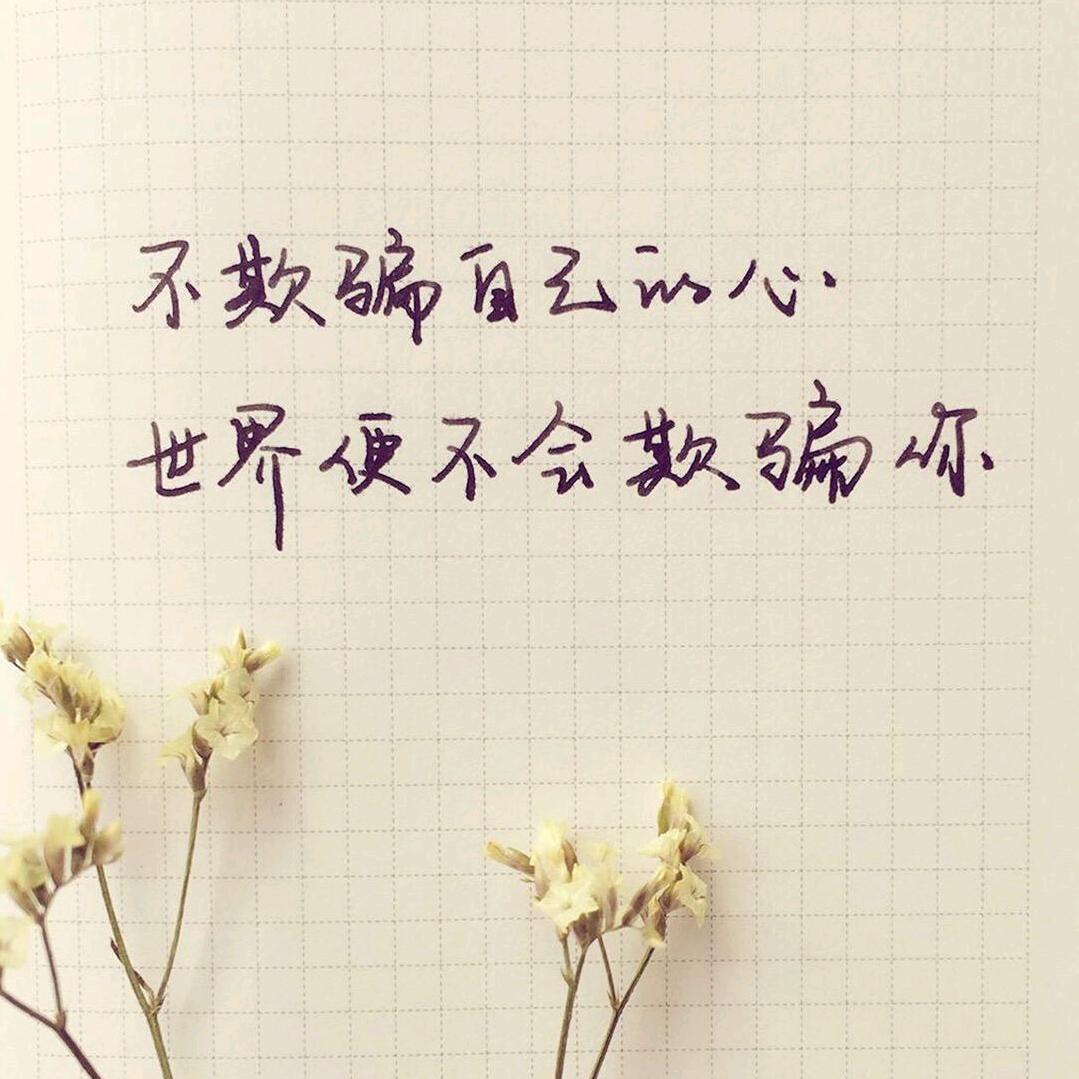 不欺骗自己的心
世界便不会欺骗你